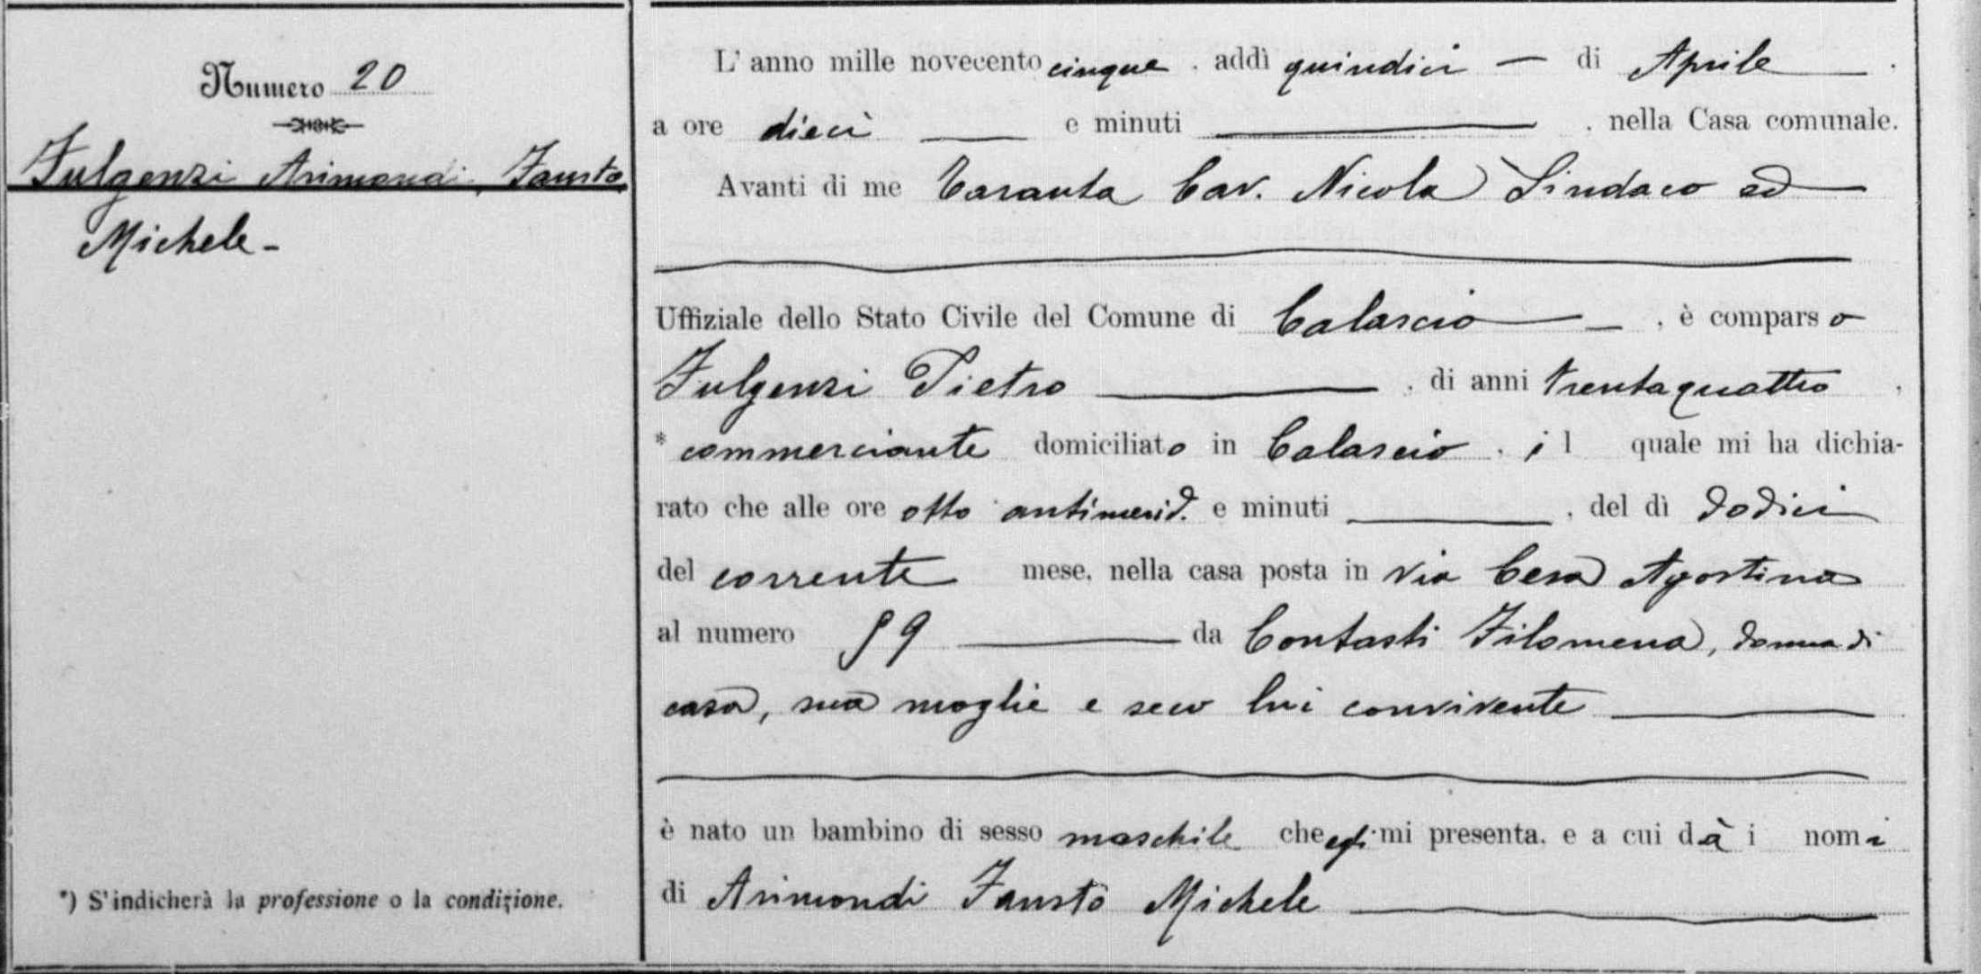 Numero 20
Fulgenzi Arimondi, Fausto
Michele -
*) S'indicherà la professione o la condizione.
L'anno mille novecento cinque, addì quindici — di Aprile.
a ore dieci e minuti , nella Casa comunale.
Avanti di me Taranta Cav. Nicola Sindaco ed
Uffiziale dello Stato Civile del Comune di Calascio , è comparso
Fulgenzi Pietro , di anni trentaquattro ,
* commerciante domiciliato in Calascio, il quale mi ha dichia-
rato che alle ore otto antimerid. e minuti , del dì dodici
del corrente mese, nella casa posta in via Cesa Agostina
al numero 59 da Contasti Filomena, donna di
casa, sua moglie e seco lui convivente
è nato un bambino di sesso maschile che egli mi presenta, e a cui dà i nomi
di Arimondi Fausto Michele